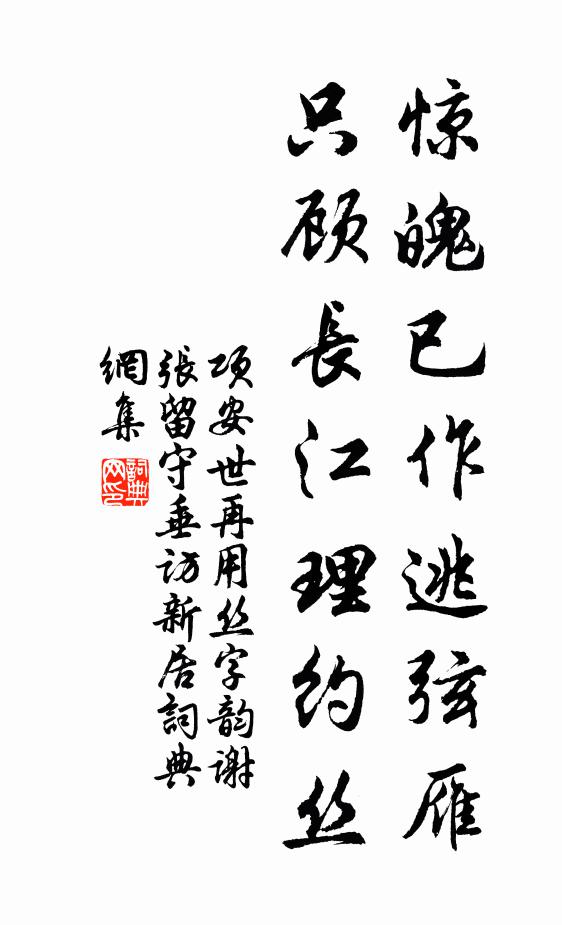 惊魄已作逃弦雁
只顾長江理约丝
项安世再用丝字韵谢
張留守垂访新居詞典
網集
詞典网印